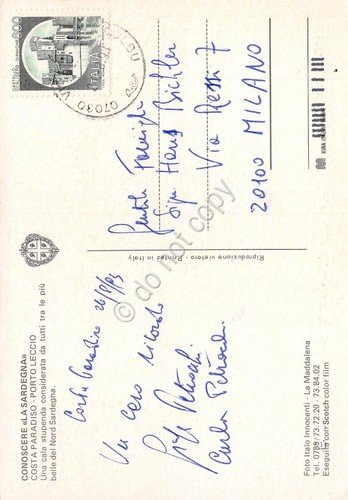 CONOSCERE «LA SARDEGNA»
COSTA PARADISO - PORTO LECCIO
Una cala stupenda considerata da tutti tra le più
belle del Nord Sardegna.
Costa Paradiso
Un caro ricordo
Carla
Foto Italo Innocenti - La Maddalena
Tel. 0789/73.72.20 - 73.84.02
Eseguita con Scotch color film
Riproduzione vietata - Printed in Italy
do not copy
600
ITALIA
07030
Gentile Famiglia
Sig. Hans Bichler
Via Ressi 7
20100 MILANO